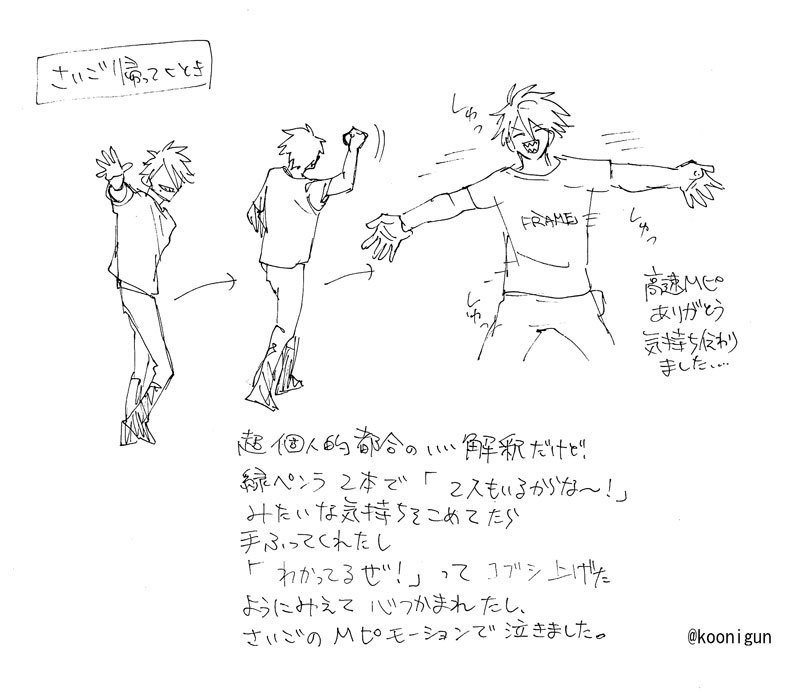 さいご帰ってくとき
しゅっ
FRAME
しゅっ
しゅっ
高速Mピ
ありがとう
気持ち伝わり
ました…
超個人的都合のいい解釈だけど!
緑ペンラ2本で「2人もいるからな〜!」
みたいな気持ちをこめてたら
手ふってくれたし
「わかってるぜ!」ってコブシ上げた
ようにみえて心つかまれたし、
さいごのMピモーションで泣きました。
@koonigun